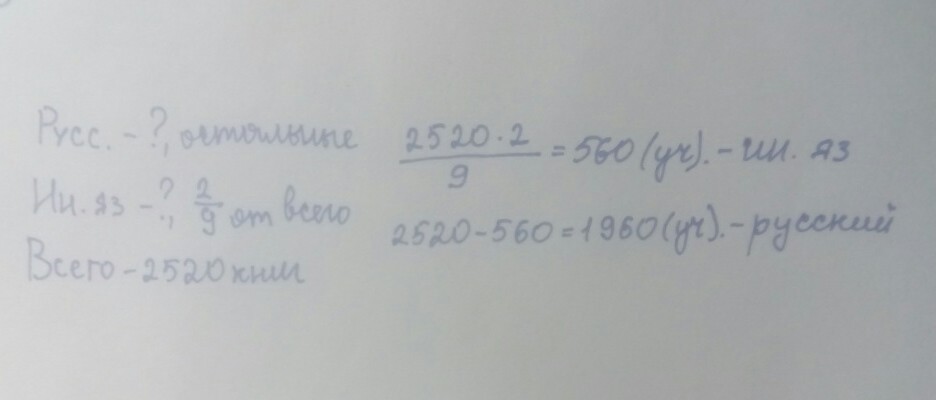 Русс. - ?, остальные
Ин. яз - ?, 2/9 от всего
Всего - 2520 книг
2520 · 2 / 9 = 560 (уч). - ин. яз
2520 - 560 = 1960 (уч). - русский